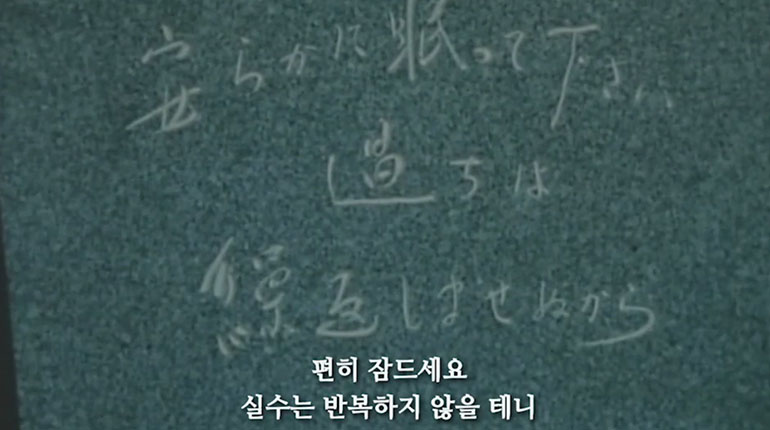 安らかに眠って下さい
過ちは
繰返しませぬから
편히 잠드세요
실수는 반복하지 않을 테니